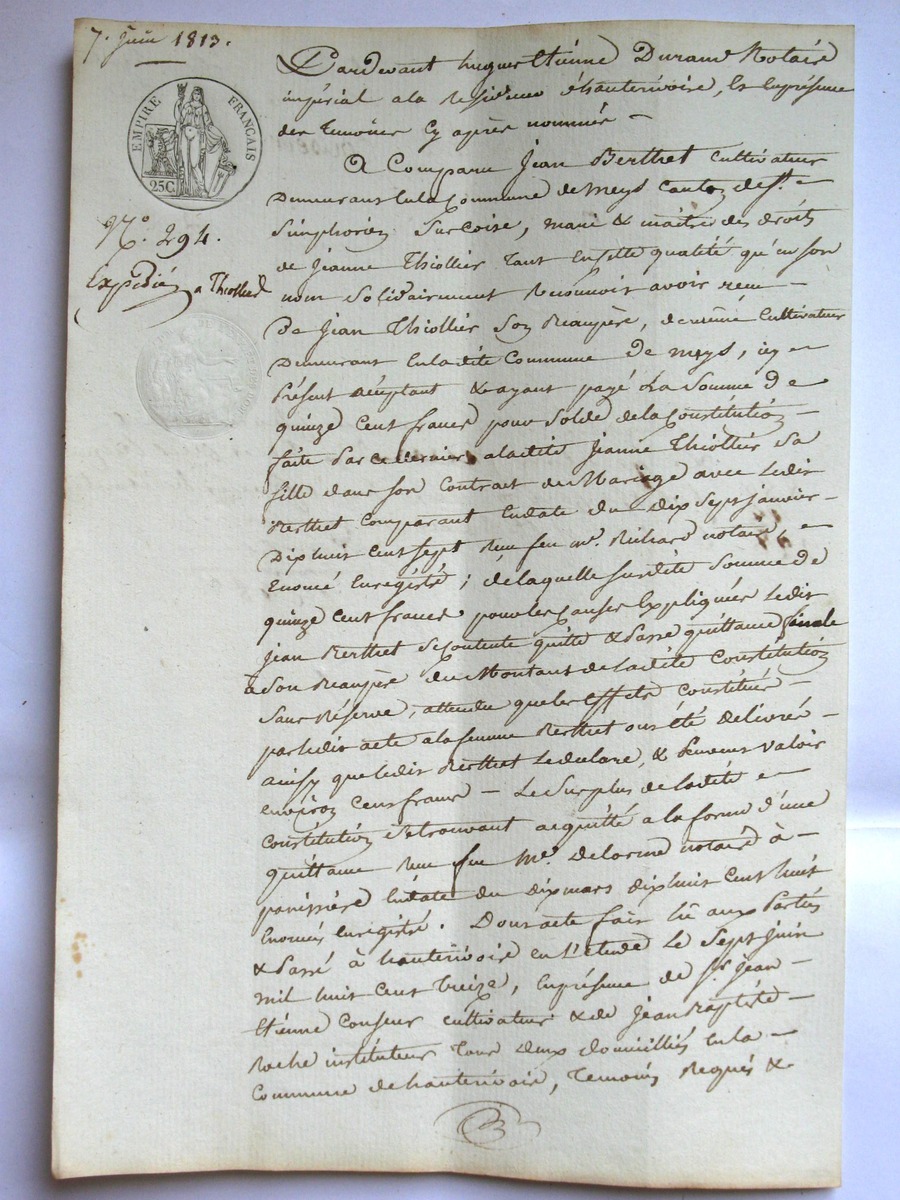 7. Juin 1813.
EMPIRE FRANÇAIS
25C.
N.º 294.
Expedié a Thiollier
Pardevant hugues Etiénne Durand Notaire
impérial a la Residence d'hauterivoire, & En présence
des temoins Cy après nommés —
A Comparu Jean Berthet Cultivateur
Demeurant En la Commune de Meys Canton de St. —
Simphorien Sur Coise, marié & maître des droits
de Jeanne Thiollier tant En cette qualité qu'en son
nom Solidairement Reconnoit avoir reçu —
De Jean Thiollier Son Beaupère, Cultivateur
Demeurant En la dite Commune de Meys, icy —
Présent acceptant & ayant payé La Somme de
quinze Cent francs pour Solde de la Constitution —
faite Par ce dernier a la dite Jeanne Thiollier Sa
fille dans son Contrat de Mariage avec Ledit
Berthet Comparant En date du dix Sept janvier —
Dix huit Cent Sept Reçu feu Me. Richard notaire, —
Enoncé Enregistré ; de laquelle Susdite Somme de
quinze Cent francs pour les Causes Expliquées Ledit
Jean Berthet Se Contente quitte & Passe quittance finale
à Son Beaupère du Montant de la dite Constitution
Sans Réserve, attendu que les Effets Constitués —
par ledit acte a la femme Berthet ont été délivrés —
ainsy que ledit Berthet Le déclare, & Peuvent Valoir
environ Cent francs — Le Surplus de la dite —
Constitution Se trouvant acquitté a la forme d'une
quittance Reçu feu Me. Delorme notaire à —
En date du dix mars dix huit Cent huit
Enoncés Enregistré. Dont acte fait lû aux Parties
& Passé à hauterivoire en l'étude Le Sept Juin
mil huit Cent treize, En présence de Sr. Jean —
Etiénne cultivateur & de Jean Baptiste —
Roche instituteur tous deux domiciliés En la —
Commune de hauterivoire, temoins Requis &